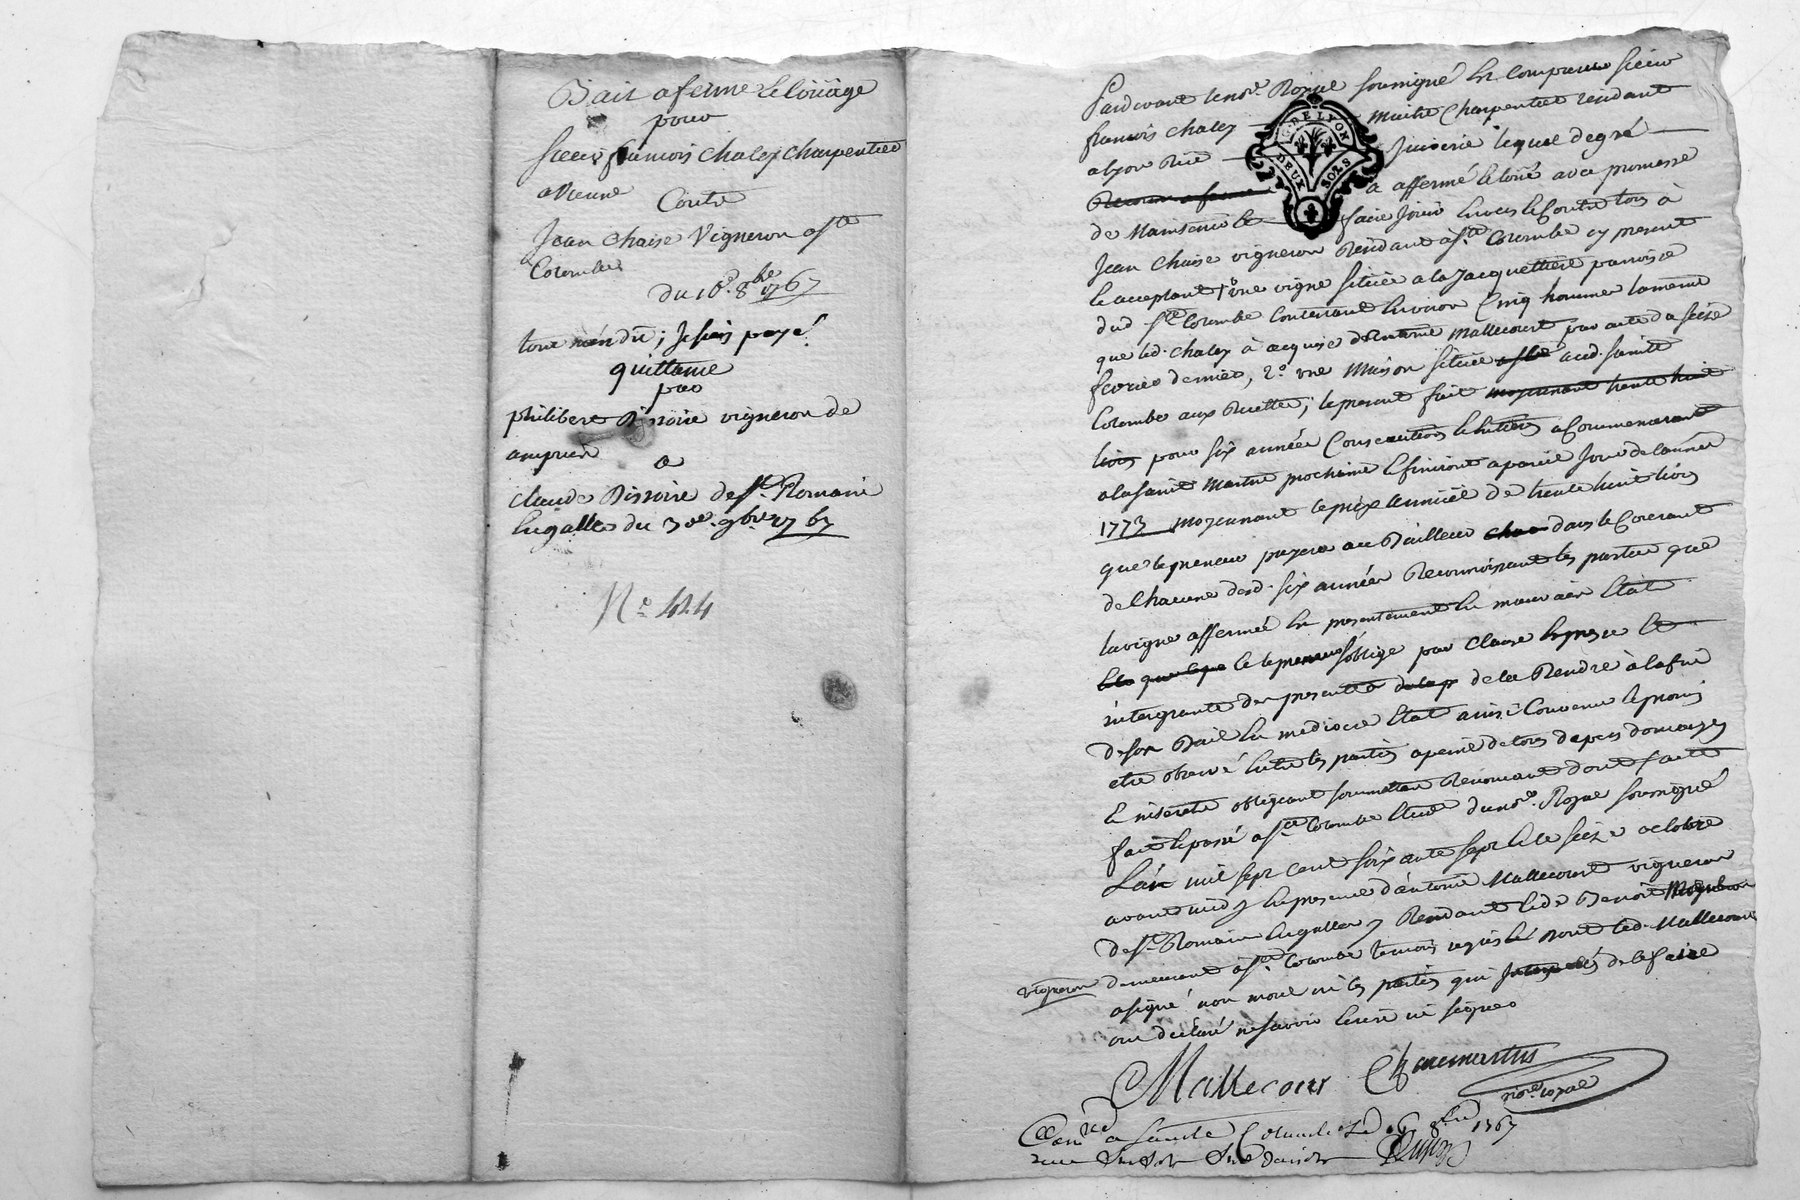 Bail a ferme et loüage
pour
sieur francois chalez charpentier
a vienne
Contre
Jean chaise Vigneron a Ste
Colombe
du 16e 8bre 1767
tout rien dû ; Je suis payé
quittance
par
philibert Bissoire vigneron de
ampuis
a
claude Bissoire de St Romain
En galles du 30e 9bre 1767
No 44
Pardevant le nore Royal soussigné En Comparu sieur
francois chalez maitre Charpentier residant
a lyon rue Juiverie lequel de gré
G. DE LYON
DEUX SOLS
a affermé et loüé avec promesse
de maintenir et faire Joüir Envers et Contre tous à
Jean chaise vigneron Residant à Ste Colombe cy present
et acceptant 1o vne vigne sitüée a la Jacquettiere parroisse
dud Ste Colombe Contenant Environ Cinq hommes la meme
que led. chalez à acquise d'Antoine Mallecourt par acte du seize
fevrier dernier, 2o vne Maison sitüée aud. sainte
Colombe aux Ruettes ; le present fait moyenant trente huit
livres pour six années Consecutives et entieres a Commencer
a la saint Martin prochaine Et finiront a pareil Jour de l'année
1773 moyennant le prix annüel de trente huit livres
que le preneur payera au Bailleur dans le Courant
de Chacune desd. six années Reconnoissant les parties que
la vigne affermée Est presentement En mauvais Etat
et le preneur s'oblige par clause Expresse et
intergrante des presentes de la Rendre à la fin
de son Bail En mediocre Etat ainsi Convenu et promis
etre observé Entre les parties a peine de tous depens domages
Et interets obligeant soumettant Renonceant dont acte
fait et passé a Ste Colombe Etude du nore Royal soussigné
L'an mil sept cent soixante sept et le seize octobre
avant midy En presence d'antoine Mallecourt vigneron
de St Romain En galles y Residant et de Benoit
vigneron demeurant à Ste Colombe temoins requis led. Mallecourt
a signé non ni les parties qui Interpellés de le faire
ont declaré ne savoir Ecrire ni signer
Mallecour
nore royal
Conlé a Sainte Colombe le 16 8bre 1767